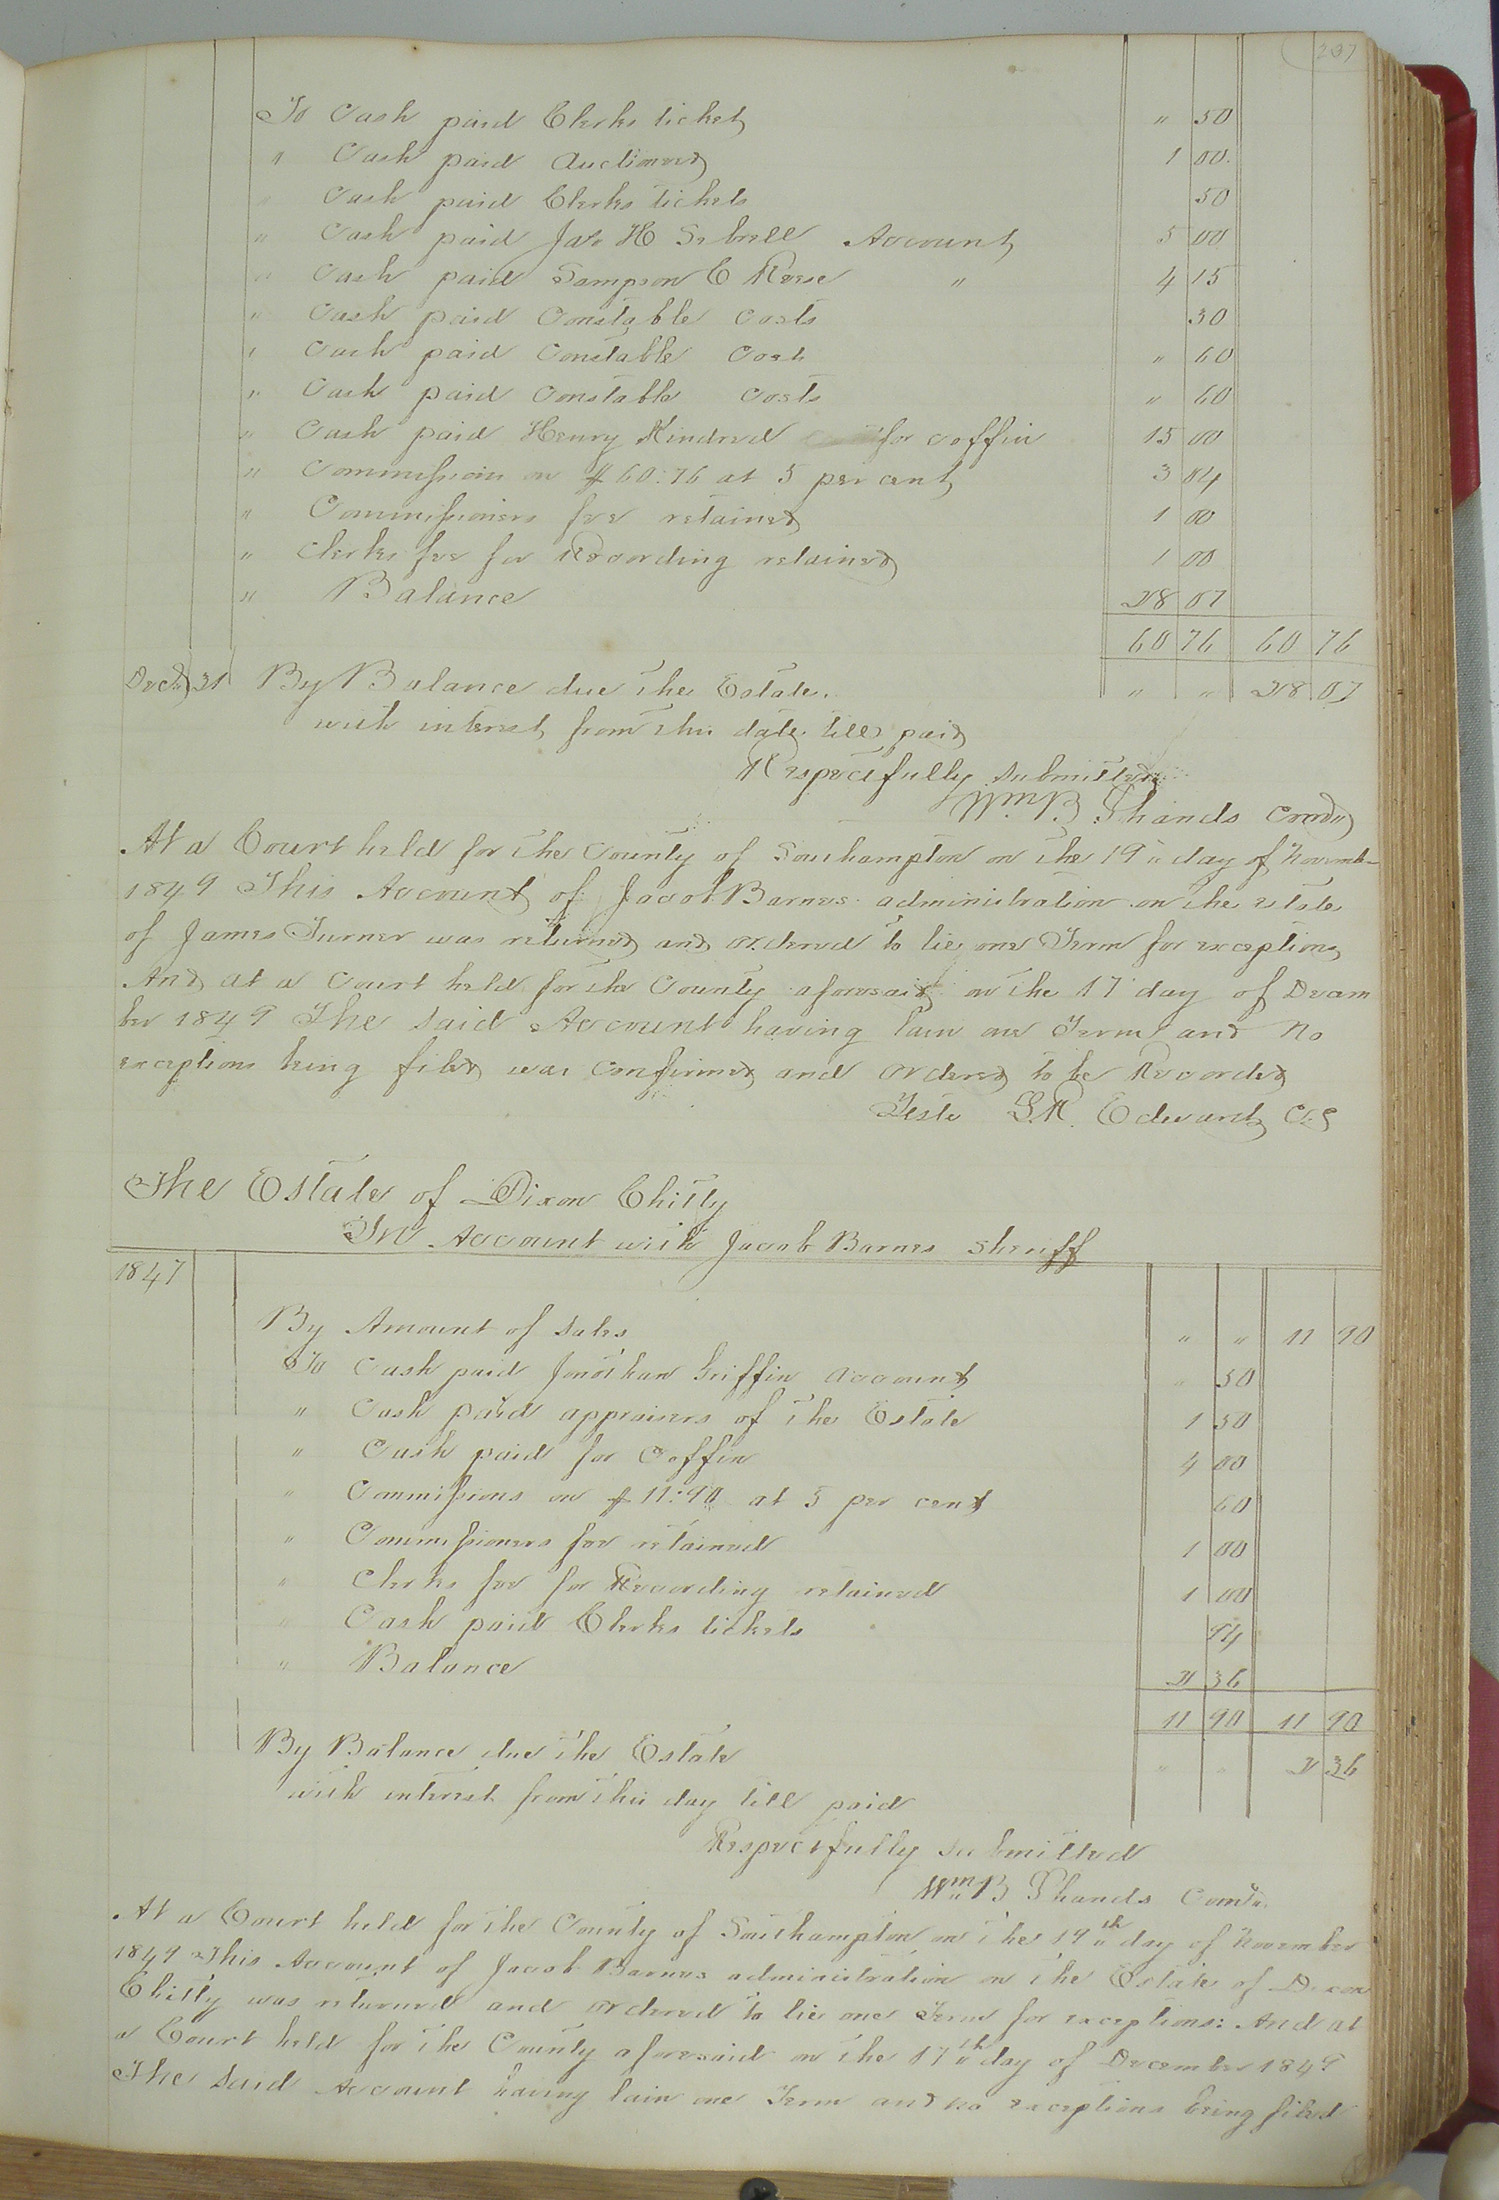 237
To Cash paid Clerks ticket " 50
" Cash paid Auctioneer 1 00
" Cash paid Clerks tickets 50
" Cash paid Jas H Sebrell Account 5 00
" Cash paid Sampson C Reese " 4 15
" Cash paid Constable Costs 30
" Cash paid Constable Costs " 60
" Cash paid Constable Costs " 60
" Cash paid Henry Kindred for coffin 15 00
" Commissions on $60:76 at 5 per cent 3 04
" Commissioners fee retained 1 00
" Clerks fee for Recording retained 1 00
" Balance 28 07
60 76 60 76
Dec 31 By Balance due the Estate. " " 28 07
with interest from this date till paid
Respectfully submitted
Wm B Shands Comr
At a Court held for the County of Southampton on the 19" day of Novemb
1849 This Account of Jacob Barnes administration on the estate
of James Turner was returned and ordered to lie one Term for exceptions
And at a Court held for the County aforesaid on the 17 day of Decem
ber 1849 The said Account having lain one Term and no
exceptions being filed was confirmed and ordered to be Recorded
Teste L.R. Edwards CC
The Estate of Dixon Chitty
In Account with Jacob Barnes Sheriff
1847
By Amount of Sales " " 11 90
To Cash paid Jonathan Griffin Account " 50
" Cash paid appraisers of the Estate 1 50
" Cash paid for Coffin 4 00
" Commissions on $11:90 at 5 per cent 60
" Commissioners fee retained 1 00
" Clerks fee for Recording retained 1 00
" Cash paid Clerks tickets 94
" Balance 2 36
11 90 11 90
By Balance due the Estate " " 2 36
with interest from this day till paid
Respectfully submitted
Wm B Shands Comr
At a Court held for the County of Southampton on the 19th day of November
1849 This Account of Jacob Barnes administration on the Estate of Dixon
Chitty was returned and ordered to lie one Term for exceptions: And at
a Court held for the County aforesaid on the 17th day of December 1849
The Said Account having lain one Term and no exceptions being filed